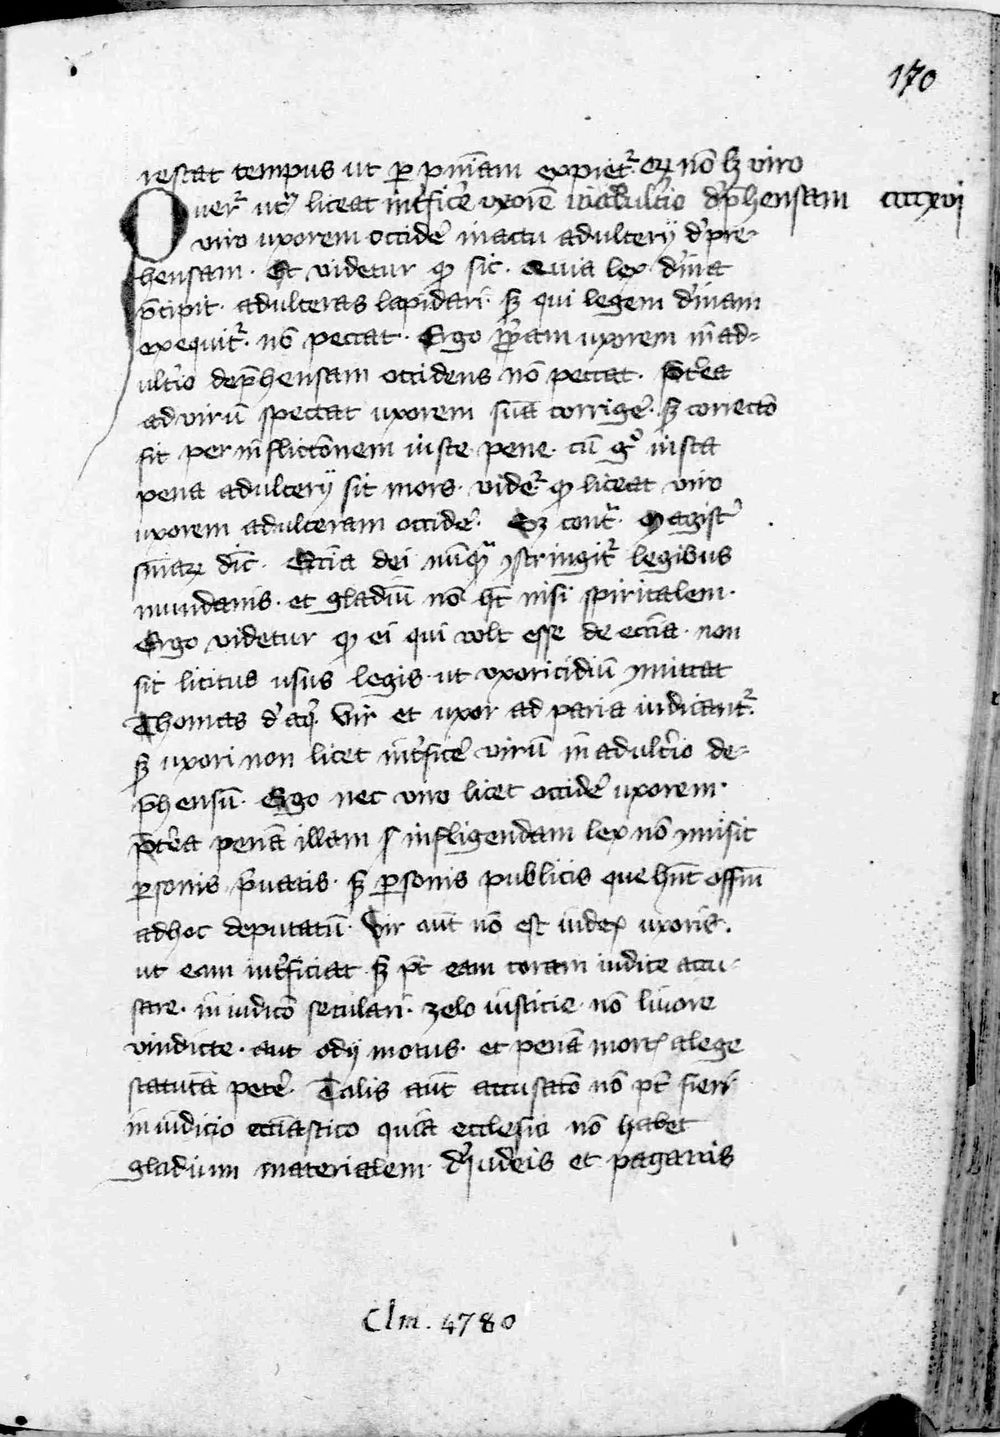 170
restat tempus ut per pniam expiet᷑ eqz nō lz viro
Quer᷑ utrum liceat int᷑fice᷑ uxorē in adult᷑io dep̄hensam ccccxvi
viro uxorem occide᷑ in actu adulterij depre-
hensam. Et videtur qd sic. Quia lex diuina
p̄cipit. adulteras lapidari. sz qui legem diuinam
exequit᷑. nō peccat. Ergo pp̄am uxorem in ad-
ult᷑io dep̄hensam occidens nō peccat. Pret᷑ea
ad virū spectat uxorem suā corrige᷑. sz correctō
fit per inflictōnem iuste pene. cū g° iusta
pena adulterij sit mors. vide᷑ qd liceat viro
uxorem adulteram occide᷑. Sz contra. Magist᷑
sn̄iaꝝ dic̄. Ecc̄ia dei nūqᵃ ꝯstringit᷑ legibus
mundanis. et gladiū nō hꝫ nisi spiritalem.
Ergo videtur qd ei qui volt esse de ecc̄ia. non
sit licitus usus legis. ut uxoricidiū ꝯmittat
Thomas d᷑ aq᷑. Vir et uxor ad paria iudicant᷑.
sz uxori non licet int᷑fice᷑ virū in adult᷑io de-
p̄hensū. Ergo nec viro licet occide᷑ uxorem.
p̄t᷑ea penā illam infligendam lex nō ꝯmisit
ꝑsonis p᷑uatis. sz ꝑsonis publicis que hn̄t offm̄
ad hoc deputatū. Vir aut̄ nō est iudex uxoris.
ut eam int᷑ficiat. sz pt̄ eam coram iudice accu-
sare. in iudicō seculari. zelo iusticie. nō liuore
vindicte. aut odij motus. et penā mort᷑ a lege
statutā pete᷑. Talis aut̄ accusatō nō pt̄ fieri
in iudicio ecc̄iastico quia ecclesia nō habet
gladium materialem. De iudeis et paganis
Clm. 4780